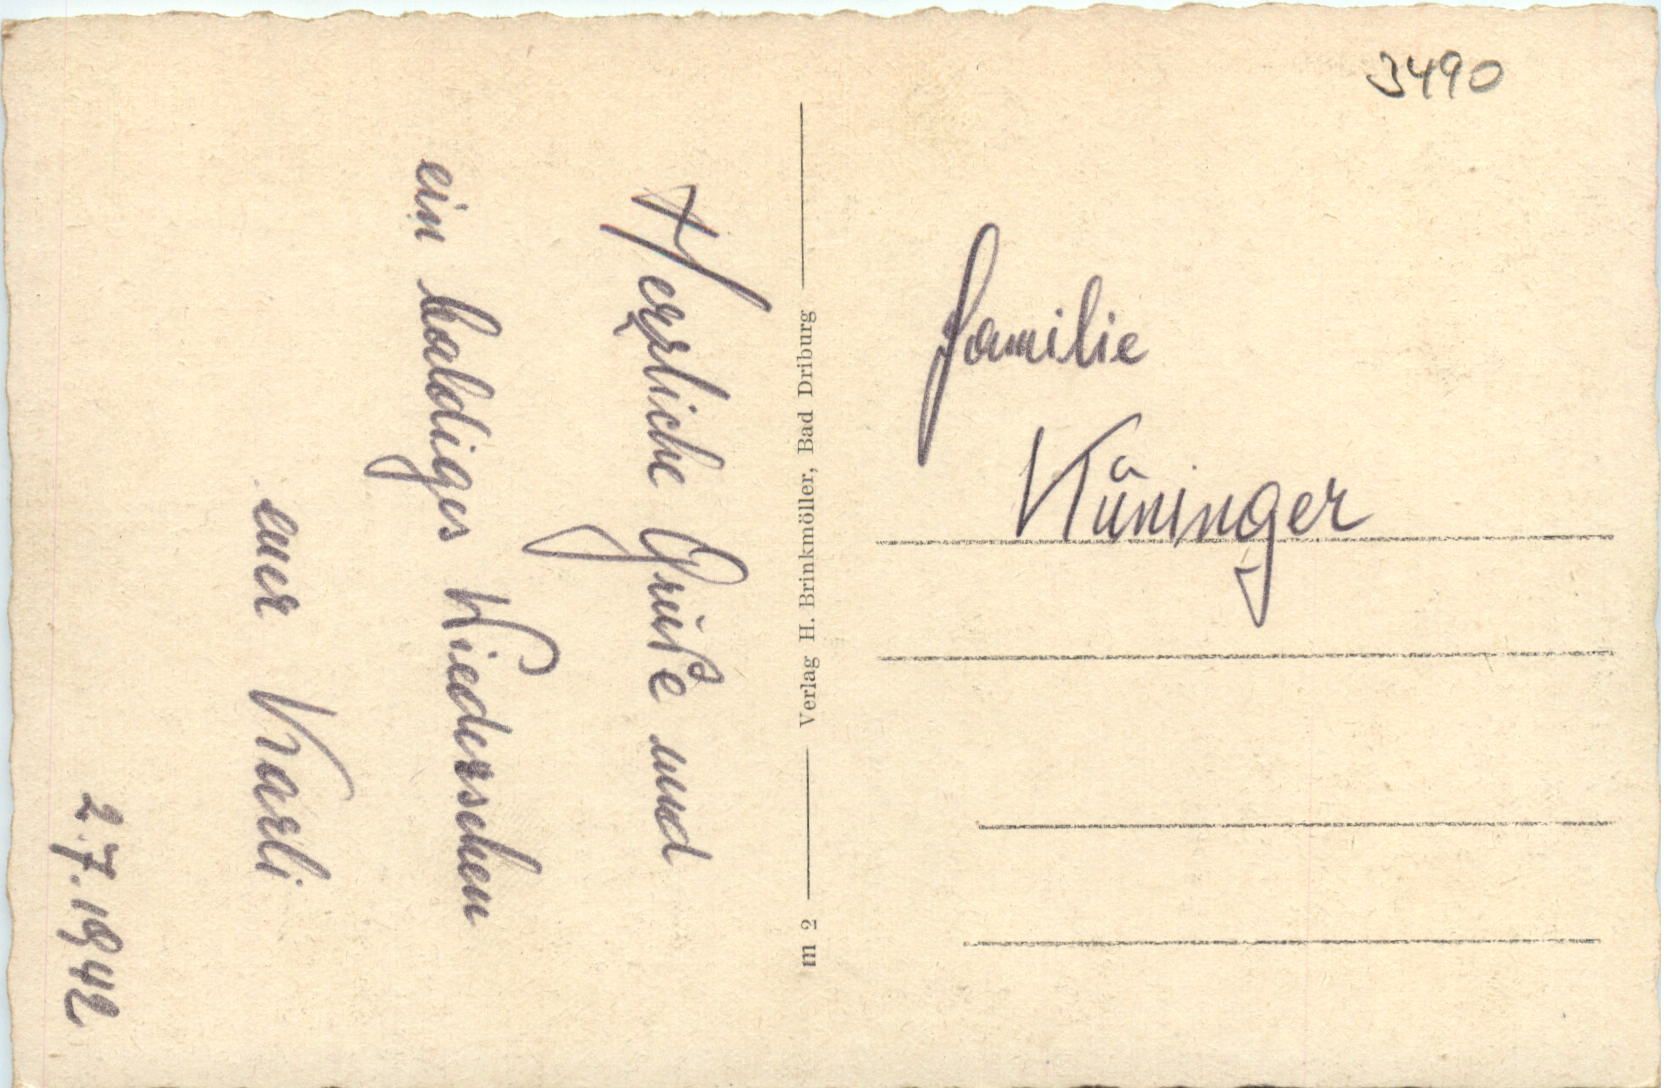 Herzliche Grüße und
ein baldiges Wiedersehen
euer Karli
2.7.1942
m 2 Verlag H. Brinkmöller, Bad Driburg
3490
Familie
Küninger